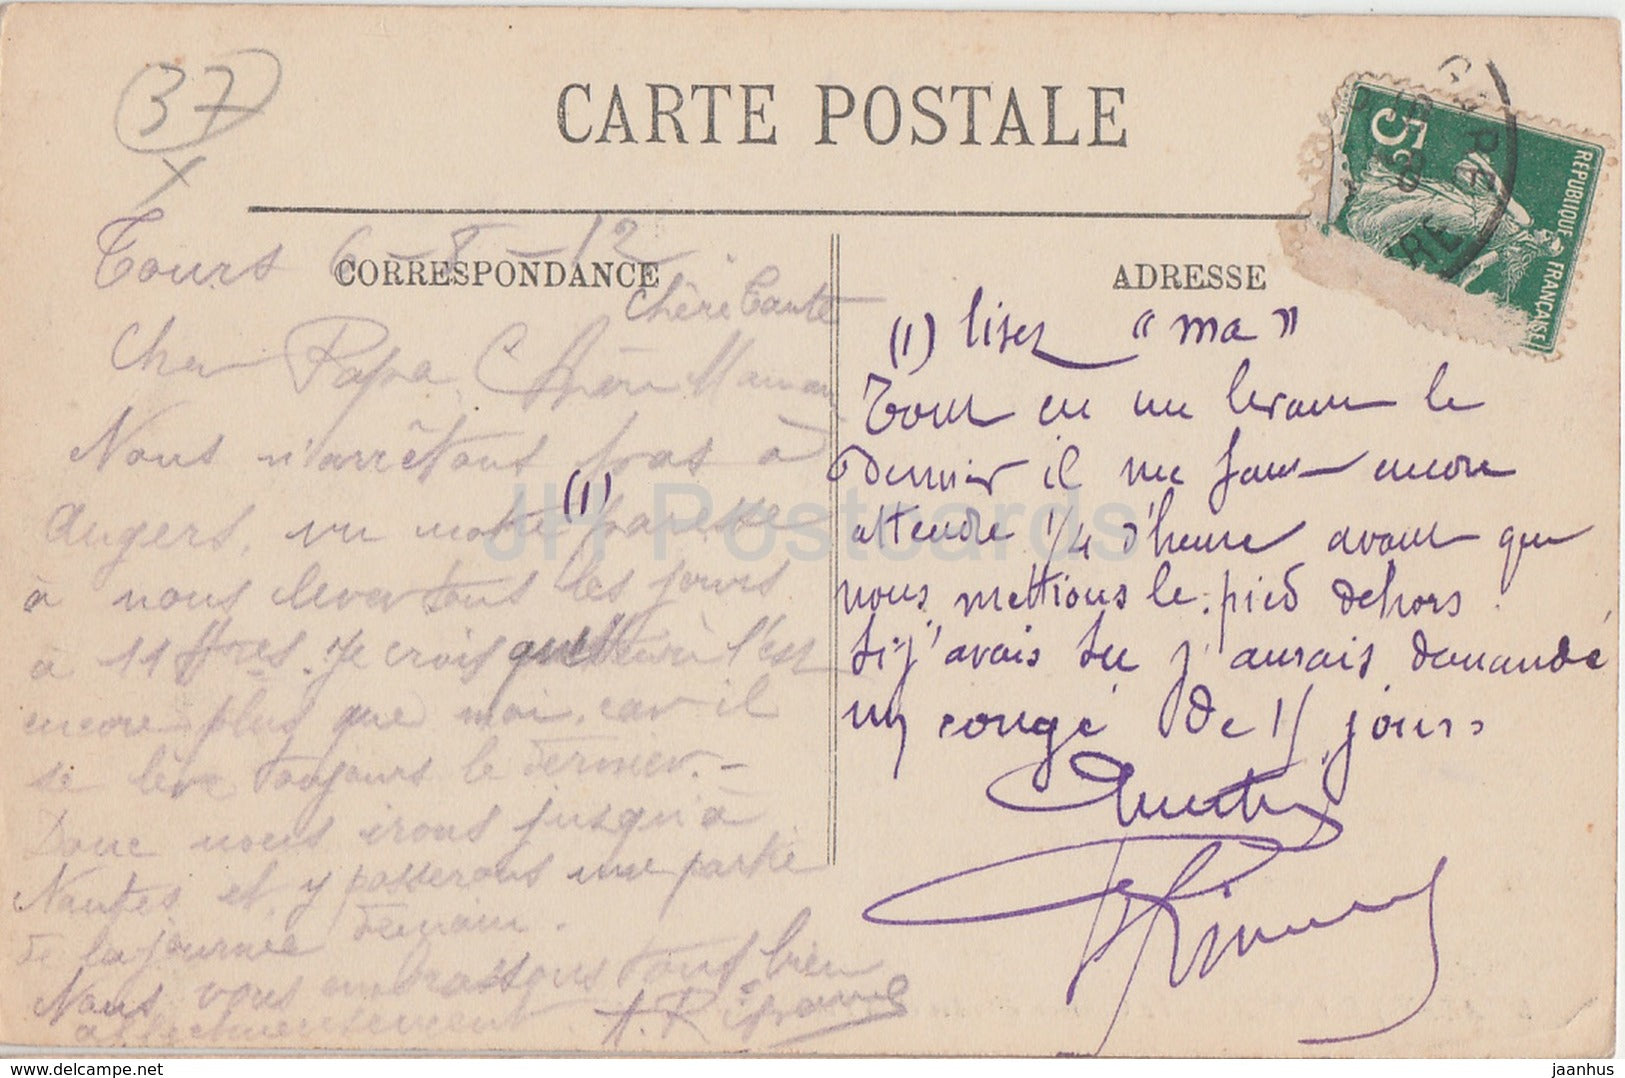 37
CARTE POSTALE
5c
REPUBLIQUE FRANÇAISE
CORRESPONDANCE
Tours 6 - - 12
Chère Tante
Cher Papa, Chère Maman
Nous n'arrêtons pas à
Angers, vu notre (1) paresse
à nous lever tous les jours
à 11 Hres. Je crois que l'est
encore plus que moi, car il
se lève toujours le dernier. -
Donc nous irons jusqu'à
Nantes et y passerons une partie
de la journée demain.
Nous vous embrassons tous bien
affectueusement
ADRESSE
(1) lisez "ma"
Tout en me levant le
dernier il me faut encore
attendre 1/4 d'heure avant que
nous mettions le pied dehors.
Si j'avais su j'aurais demandé
un congé de 15 jours
JH Postcards
www.delcampe.net
jaanhus